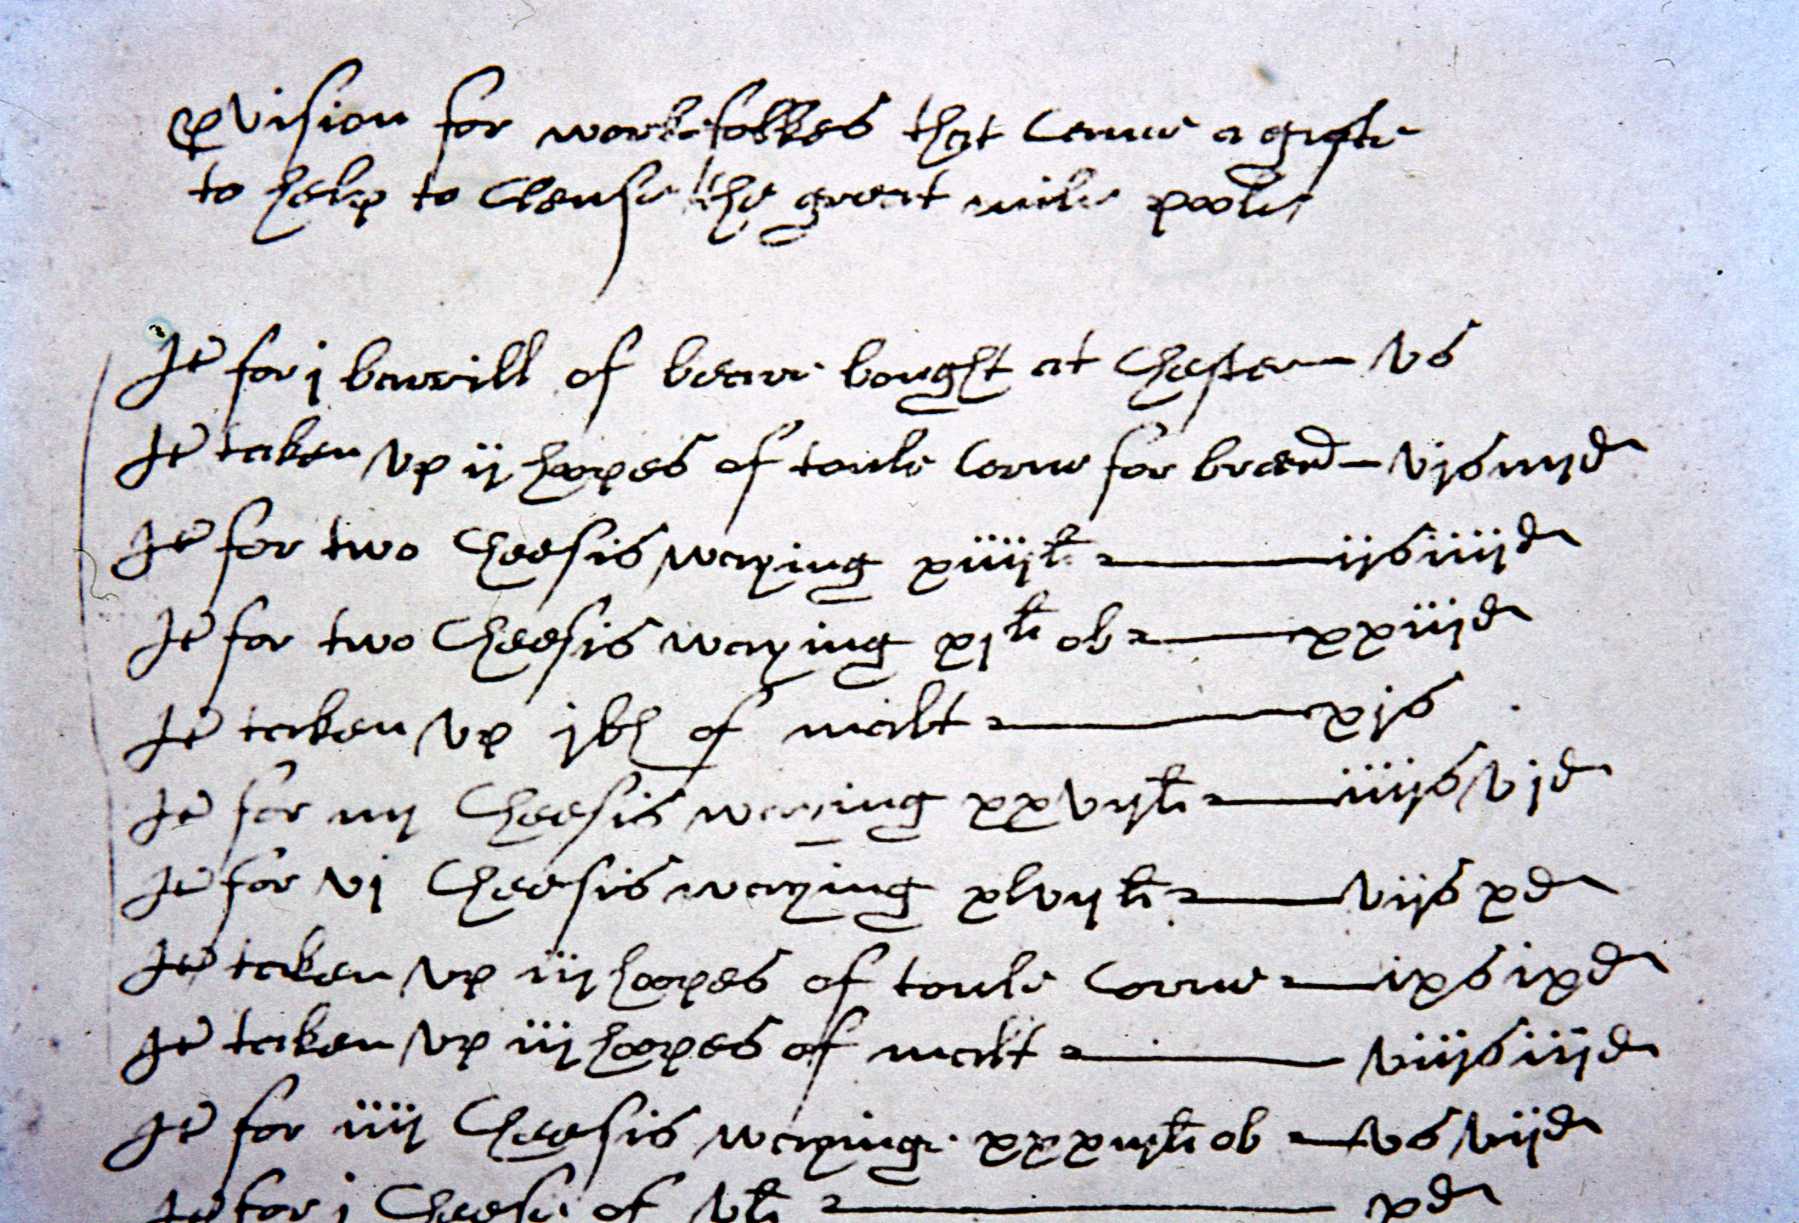 pvision for workefolkes that came a gifte
to help to Clense the great milne poole
It for j barrill of beare bought at Chester vs
It taken vp ij hoopes of toule Corne for bread vjs iiijd
It for two Cheesis waying xiiijli ijs iiijd
It for two Cheesis waying xjli ob xxiijd
It taken vp j bh of malt xjs
It for iiij Cheesis waying xxvijli iiijs vjd
It for vj Cheesis waying xlvijli vijs xd
It taken vp iij hoopes of toule Corne ixs ixd
It taken vp iij hoopes of malt viijs iijd
It for iiij Cheesis waying xxxiijli ob vs vijd
It for j Cheese of vli xd